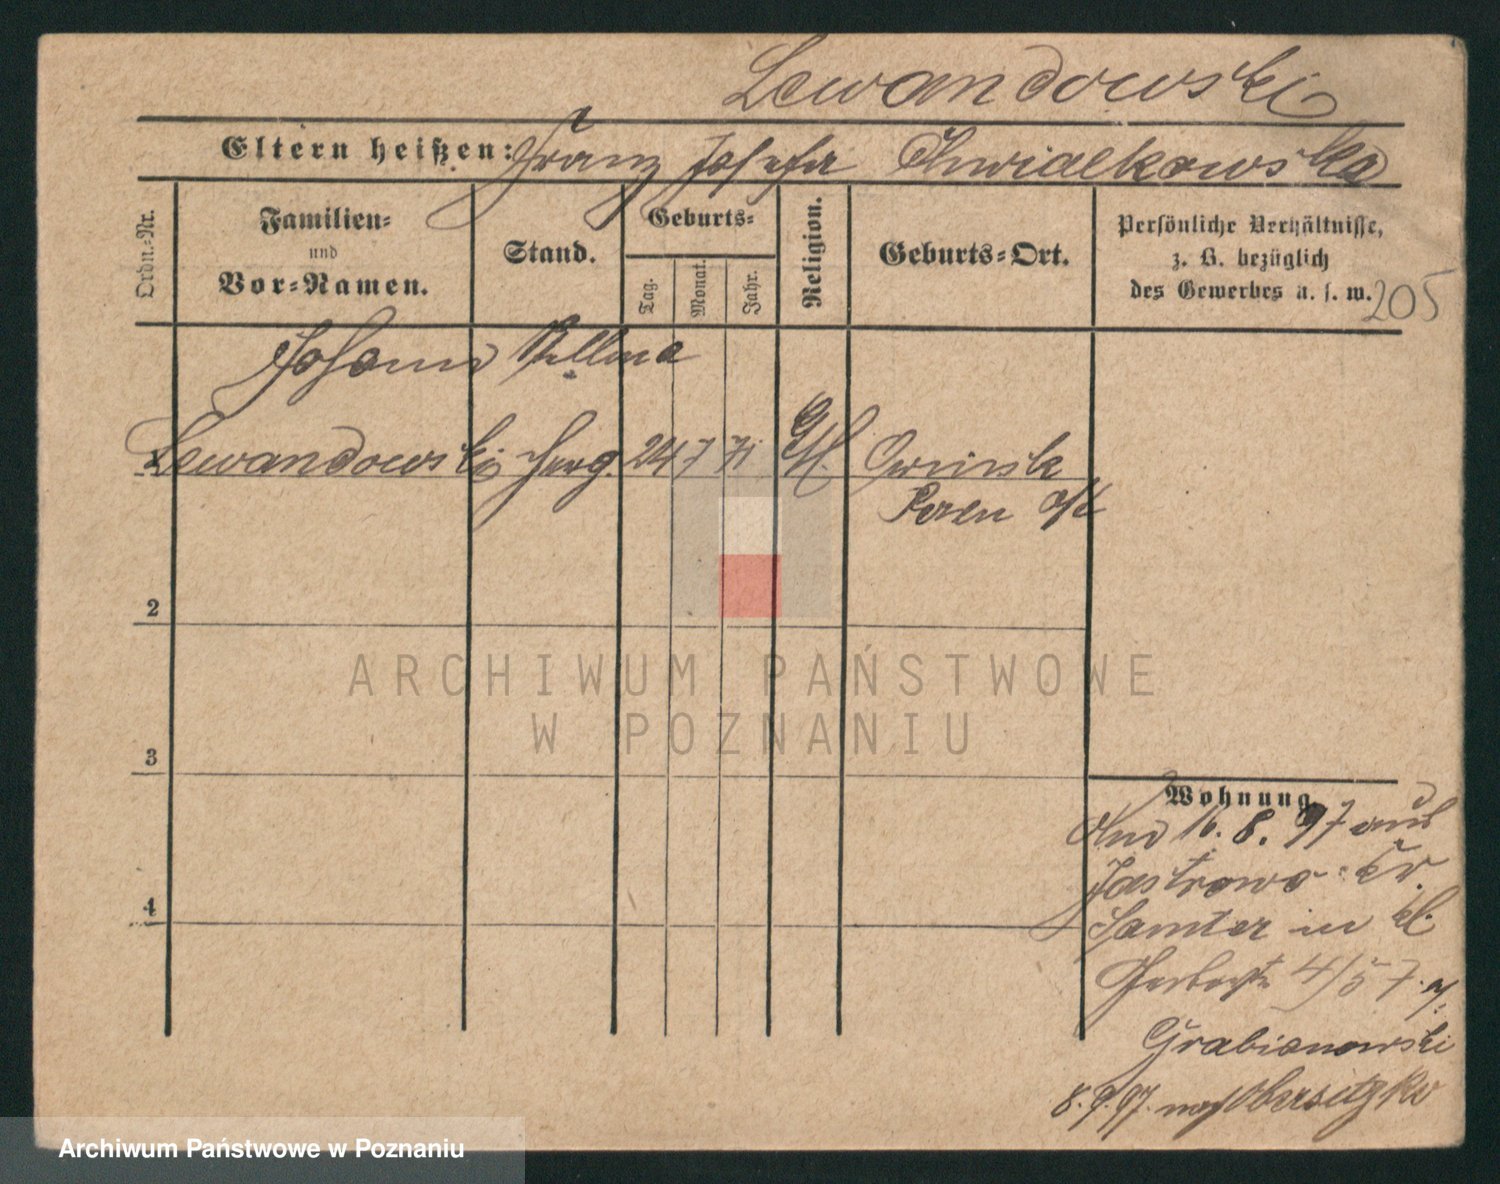 Lewandowski
Eltern heißen: Franz Josefa Chwialkowska
Ordn.-Nr.
Familien-
und
Vor-Namen.
Stand.
Geburts-
Tag.
Monat.
Jahr.
Religion.
Geburts-Ort.
Persönliche Verhältnisse,
z. B. bezüglich
des Gewerbes u. s. w.
205
Johann
Lewandowski 24 7 71
Posen Ost
2
3
4
Wohnung
16. 8. 97 aus
Jastrowo Kr.
Samter in kl.
Gerberstr 4/5
Grabianowski
8. 9. 97. nach Obersitzko
ARCHIWUM PAŃSTWOWE
W POZNANIU
Archiwum Państwowe w Poznaniu